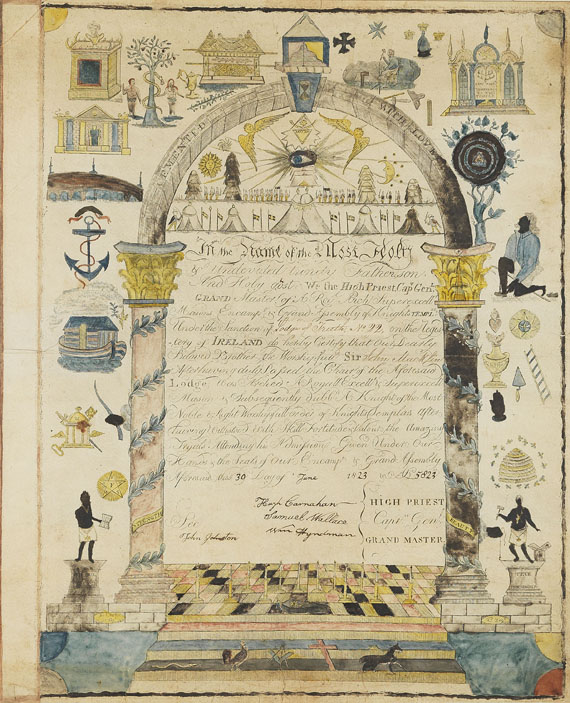 CEMENTED WITH LOVE
In the Name of the Most Holy
& Undivided Trinity Father, Son,
And Holy Ghost We the High Priest, Cap. Genl.
GRAND Master of A Royal Arch Superexcell
Masons Encamp. & Grand Assembly of Knights TEMPL
Under the Sanction of Lodge No. 22, on the Regis
tery of IRELAND do hereby Certify that Our Dearly
Beloved Brother the Worshipful Sir John
After having duly Passed the Chair of the Aforesaid
Lodge Was Arched A Royal Excell. & Superexcell
Mason & Subsequently Dubb'd A Knight of the Most
Noble & Right Worshipfull Order of Knights Templars After
having With Skill Fortitude & Valour the Amazing
Tryals Attending his Admission Given Under Our
Hands & the Seals of Our Encamp. & Grand Assembly
Aforesaid this 30 Day of June 1823 5823
Hugh Carnahan
HIGH PRIEST
Samuel Wallace
Capt. Gen.
Wm Hyndman
GRAND MASTER
Sec
John Johnston